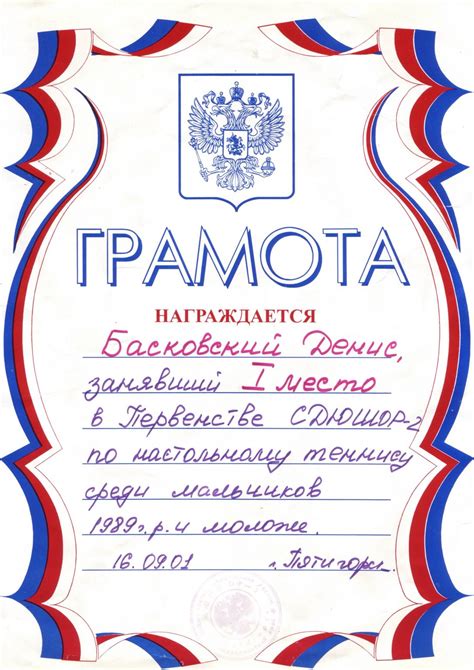 ГРАМОТА
НАГРАЖДАЕТСЯ
Басковский Денис,
занявший I место
в Первенстве СДЮШОР-2
по настольному теннису
среди мальчиков
1989г.р. и моложе.
16.09.01 г. Пятигорск.